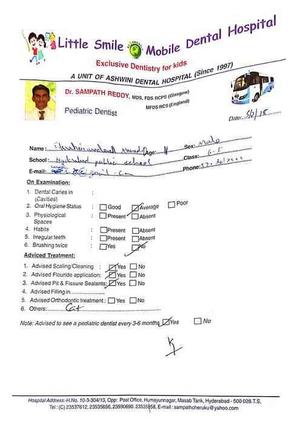 Little Smile Mobile Dental Hospital
Exclusive Dentistry for kids
A UNIT OF ASHWINI DENTAL HOSPITAL (Since 1997)
Dr. SAMPATH REDDY, MDS, FDS RCPS (Glasgow)
MFDS RCS (England)
Pediatric Dentist
Date:
Name: Age: Sex: Male
School: Hyderabad public school Class:
E-mail: Phone:
On Examination:
1. Dental Caries in :
(Cavities)
2. Oral Hygiene Status : Good Average Poor
3. Physiological : Present Absent
Spaces
4. Habits : Present Absent
5. Irregular teeth : Present Absent
6. Brushing twice : Yes No
Adviced Treatment:
1. Advised Scaling/Cleaning : Yes No
2. Advised Flouride application: Yes No
3. Advised Pit & Fissure Sealants: Yes No
4. Advised Filling in
5. Advised Orthodontic treatment : Yes No
6. Others:
Note: Advised to see a pediatric dentist every 3-6 months Yes No
Hospital Address:-H.No. 10-3-304/13, Opp: Post Office, Humayunnagar, Masab Tank, Hyderabad - 500 028 T.S.
Tel: (C) 23537612, 23535656, 23590690, E-mail: sampathcheruku@yahoo.com